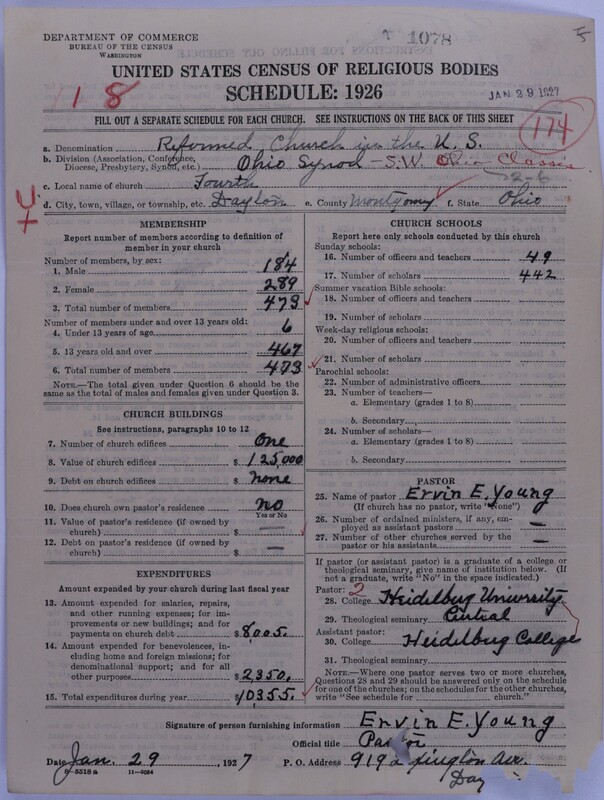 DEPARTMENT OF COMMERCE
BUREAU OF THE CENSUS
WASHINGTON
1078
UNITED STATES CENSUS OF RELIGIOUS BODIES
SCHEDULE: 1926
JAN 29 1927
18
FILL OUT A SEPARATE SCHEDULE FOR EACH CHURCH. SEE INSTRUCTIONS ON THE BACK OF THIS SHEET
174
a. Denomination Reformed Church in the U. S.
b. Division (Association, Conference, Diocese, Presbytery, Synod, etc.) Ohio Synod - S.W. Ohio Classis
c. Local name of church Fourth
d. City, town, village, or township, etc. Dayton e. County Montgomery f. State Ohio
MEMBERSHIP
Report number of members according to definition of
member in your church
Number of members, by sex:
1. Male 184
2. Female 289
3. Total number of members 473
Number of members under and over 13 years old:
4. Under 13 years of age 6
5. 13 years old and over 467
6. Total number of members 473
NOTE.—The total given under Question 6 should be
same as the total of males and females given under Question 3.
CHURCH BUILDINGS
See instructions, paragraphs 10 to 12
7. Number of church edifices One
8. Value of church edifices $ 125,000
9. Debt on church edifices $ None
10. Does church own pastor's residence No
Yes or No
11. Value of pastor's residence (if owned by
church) $ —
12. Debt on pastor's residence (if owned by
church) $ —
EXPENDITURES
Amount expended by your church during last fiscal year
13. Amount expended for salaries, repairs,
and other running expenses; for im-
provements or new building; and for
payments on church debt $8005.
14. Amount expended for benevolences, in-
cluding home and foreign missions; for
denominational support; and for all
other purposes $2350.
15. Total expenditures during year $10355.
CHURCH SCHOOLS
Report here only schools conducted by this church
Sunday schools:
16. Number of officers and teachers 49
17. Number of scholars 442
Summer vacation Bible schools:
18. Number of officers and teachers
19. Number of scholars
Week-day religious schools:
20. Number of officers and teachers
21. Number of scholars
Parochial schools:
22. Number of administrative officers
23. Number of teachers—
a. Elementary (grades 1 to 8)
b. Secondary
24. Number of scholars—
a. Elementary (grades 1 to 8)
b. Secondary
PASTOR
25. Name of pastor Ervin E. Young
(If church has no pastor, write "None")
26. Number of ordained ministers, if any, em-
ployed as assistant pastors —
27. Number of other churches served by the
pastor or his assistants —
If pastor (or assistant pastor) is a graduate of a college or
theological seminary, give name of institution below. (If
not a graduate, write "No" in the space indicated.)
Pastor: 2
28. College Heidelberg University
29. Theological seminary Central
Assistant pastor:
30. College Heidelberg College
31. Theological seminary
NOTE.—Where one pastor serves two or more churches,
Questions 28 and 29 should be answered only on the schedule
for one of the churches; on the schedules for the other churches,
write "See schedule for church."
Signature of person furnishing information Ervin E. Young
Official title Pastor
Date Jan. 29, 1927 P. O. Address 919
8-5518a 11-9034